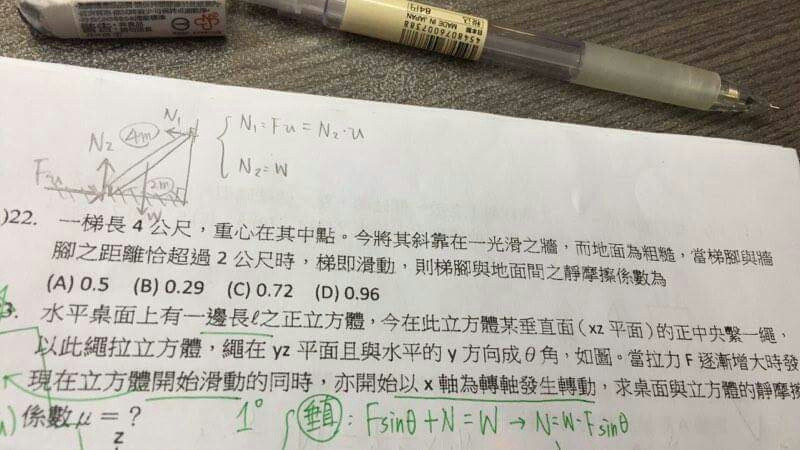 MADE IN JAPAN
4548076007388
N₁
N₁=Fu=N₂·u
4m
N₂
N₂=W
Fu
2m
W
)22. 一梯長 4 公尺，重心在其中點。今將其斜靠在一光滑之牆，而地面為粗糙，當梯腳與牆
腳之距離恰超過 2 公尺時，梯即滑動，則梯腳與地面間之靜摩擦係數為
(A) 0.5 (B) 0.29 (C) 0.72 (D) 0.96
3. 水平桌面上有一邊長ℓ之正立方體，今在此立方體某垂直面（xz 平面）的正中央繫一繩，
以此繩拉立方體，繩在 yz 平面且與水平的 y 方向成 θ 角，如圖。當拉力 F 逐漸增大時發
現在立方體開始滑動的同時，亦開始以 x 軸為轉軸發生轉動，求桌面與立方體的靜摩擦
係數 μ = ?
1° 垂直: Fsinθ+N=W → N=W-Fsinθ
z